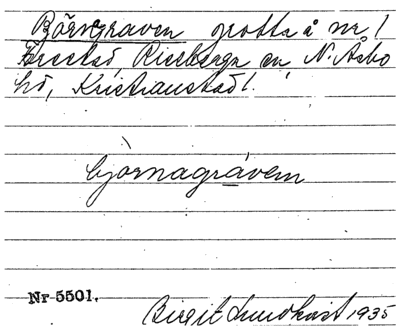 Björngraven grotta å nr 1
Riseberga sn N. Åsbo
hd, Kristianstad l.
bjòrnagrávem
Nr 5501.
Birgit Lundkvist 1935